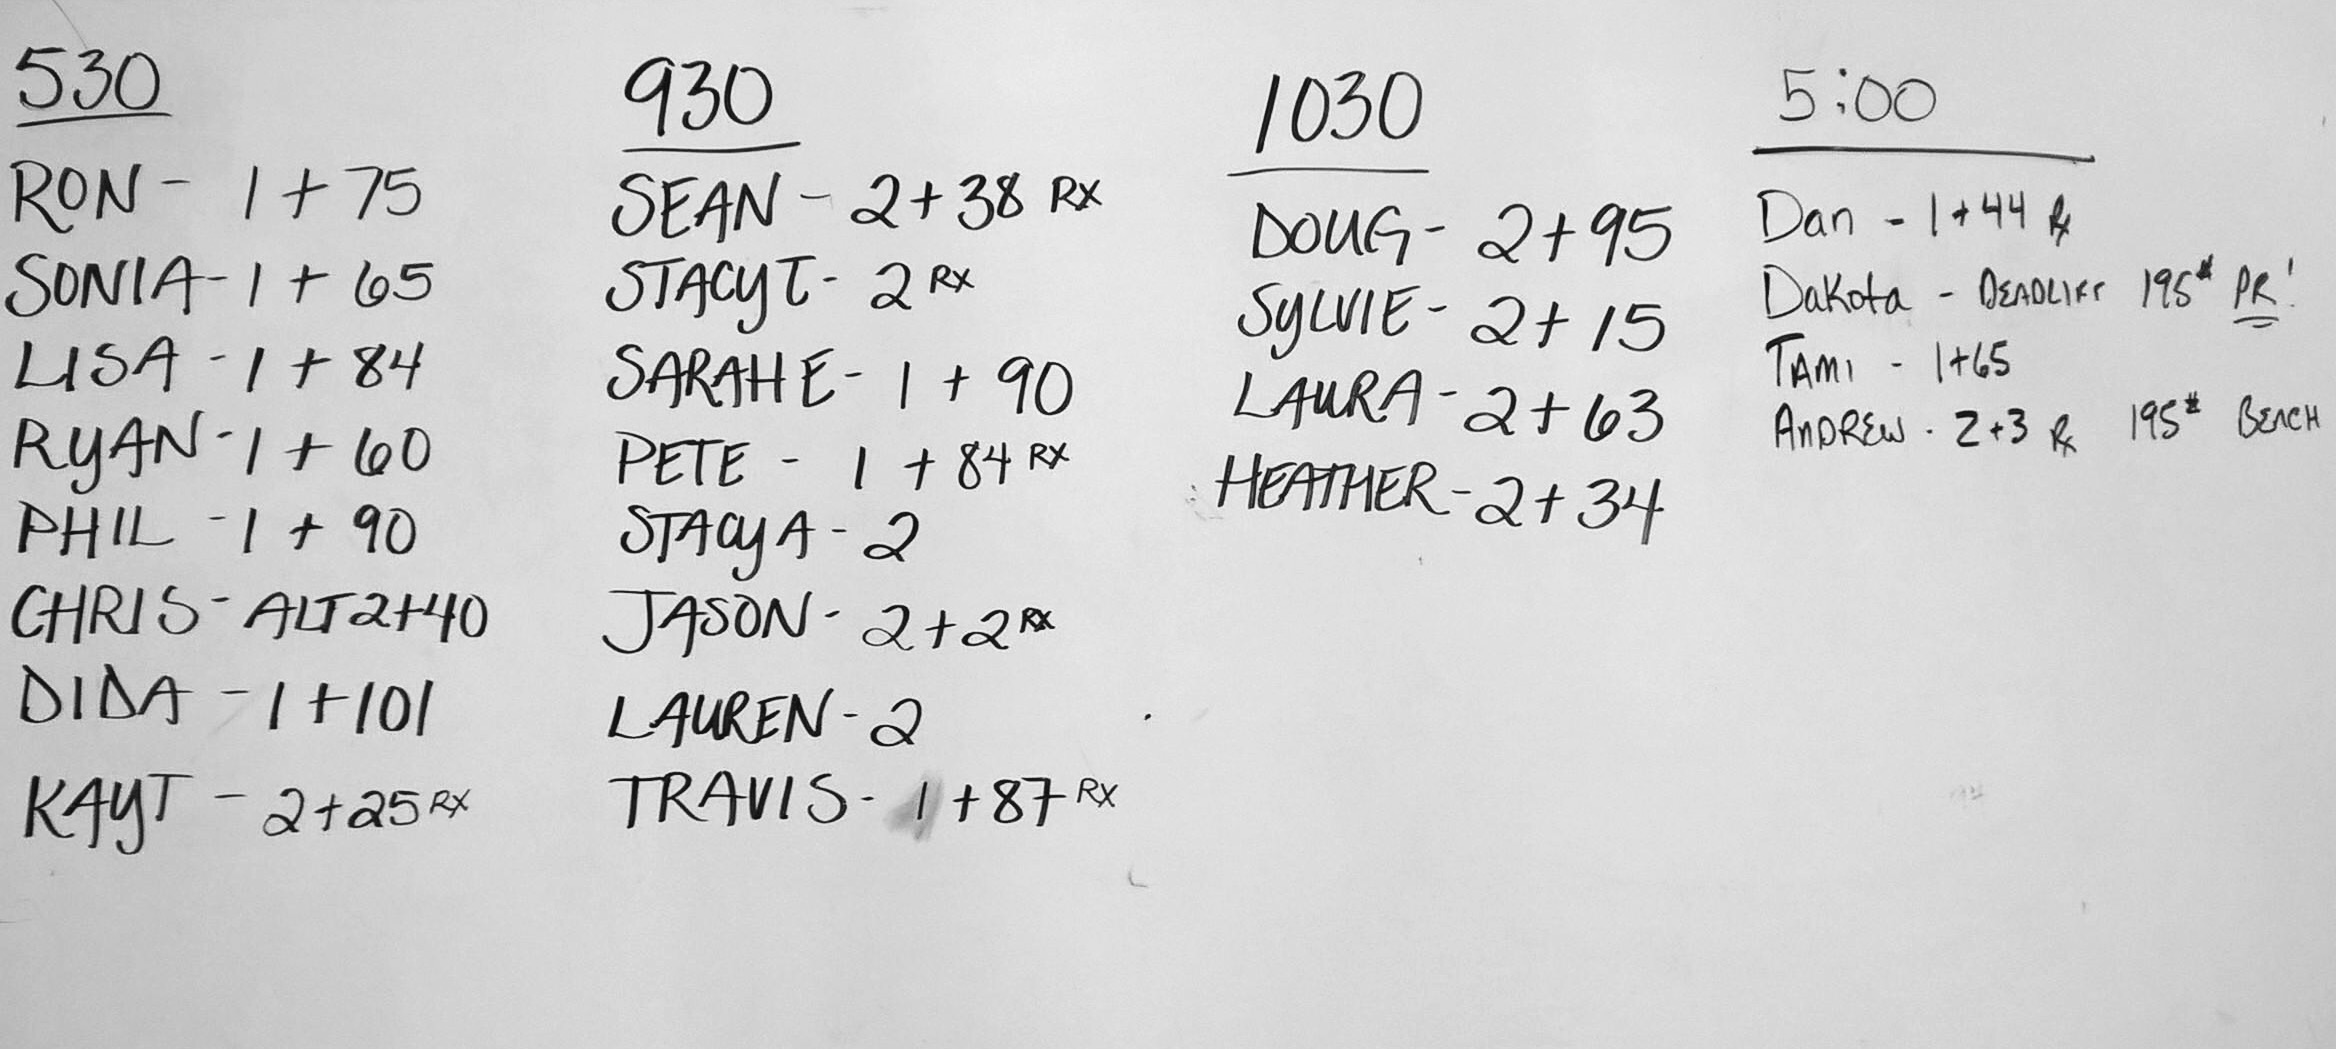 530
RON - 1 + 75
SONIA - 1 + 65
LISA - 1 + 84
RYAN - 1 + 60
PHIL - 1 + 90
CHRIS - ALT 2+40
DIDA - 1 + 101
KAYT - 2+25 RX
930
SEAN - 2+38 RX
STACY T - 2 RX
SARAH E - 1 + 90
PETE - 1 + 84 RX
STACY A - 2
JASON - 2+2 RX
LAUREN - 2
TRAVIS - 1+87 RX
1030
DOUG - 2+95
SYLVIE - 2+15
LAURA - 2+63
HEATHER - 2+34
5:00
Dan - 1+44 Rx
Dakota - DEADLIFT 195# PR!
TAMI - 1+65
ANDREW - 2+3 Rx 195# BENCH